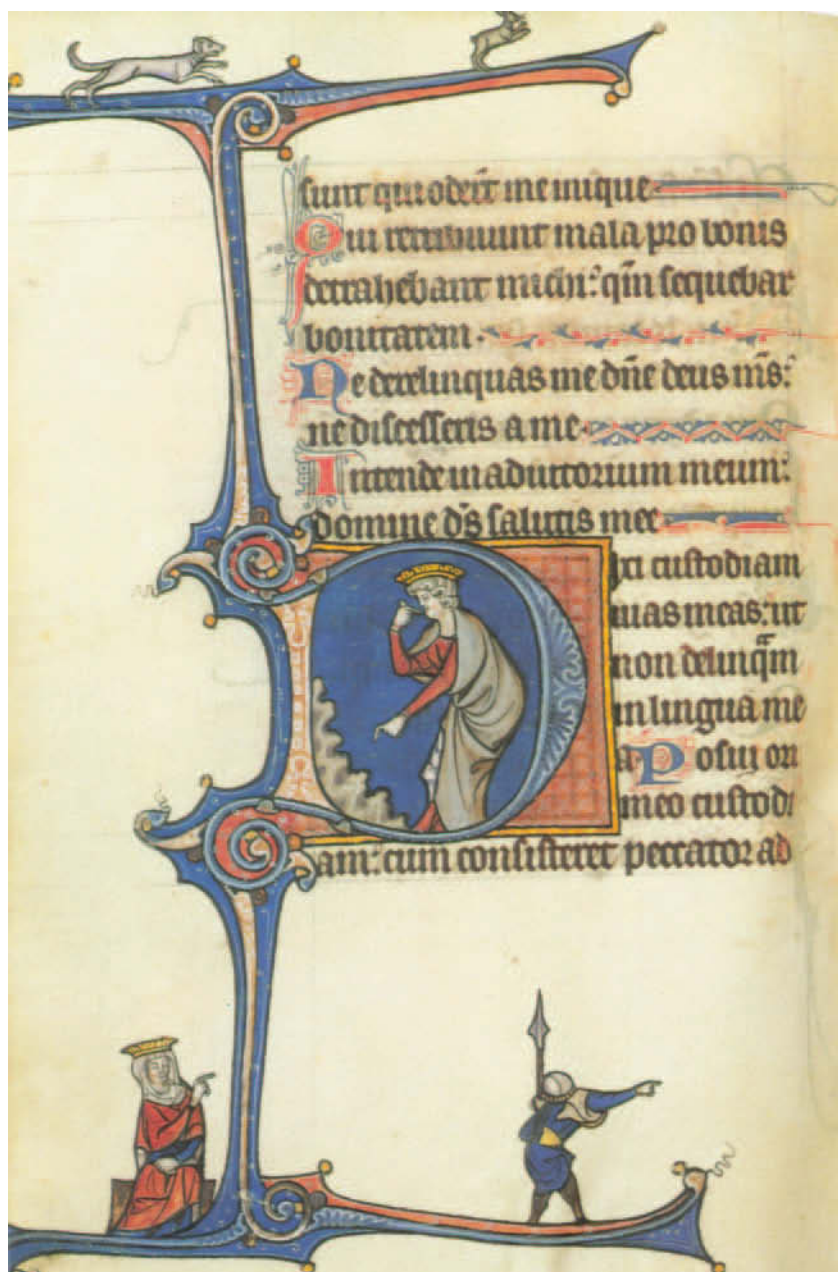 sunt qui oder̃t me inique
Qui retribuunt mala pro bonis
detrahebant michi: qm̃ sequebar
bonitatem.
Ne derelinquas me dñe deus ms̃:
ne discesseris a me.
Intende in adiutorium meum:
domine ds̃ salutis mee
Dixi custodiam
uias meas: ut
non delinqᷓm
in lingua me
a. Posui ori
meo custodi
am: cum consisteret peccator ad